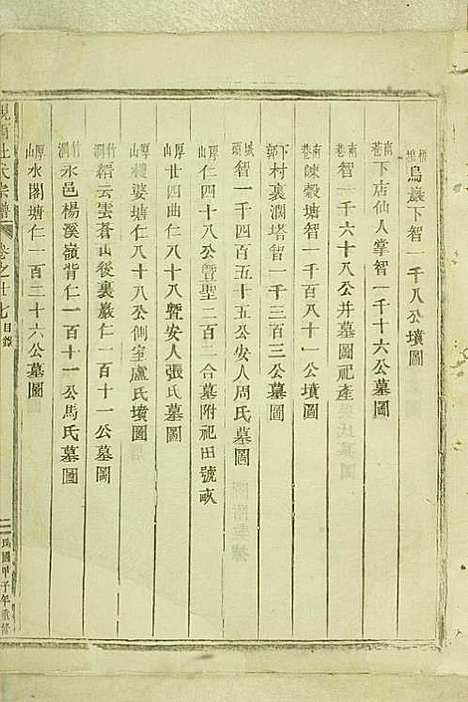 烏巖下智一千八公墳圖
南巷 下店仙人掌智一千十六公墓圖
南巷 智一千六十八公并墓圖祀產
南巷 陳穀塘智一千百八十一公墳圖
下郭 村裏澗塔智一千三百三公墓圖
城頭 智一千四百五十五公安人周氏墓圖
厚山 仁四十八公暨聖二百二合墓附祀田號畝
厚山 廿四曲仁八十八暨安人張氏墓圖
厚山 婆塘仁八十八公側室盧氏墳圖
竹澗 縉云雲蒼山後裏巖仁一百十一公墓圖
竹澗 永邑楊溪嶺背仁一百十一公馬氏墓圖
厚山 水閣塘仁一百二十六公墓圖
杜氏宗譜 卷之廿七 目錄 民國甲子年重修